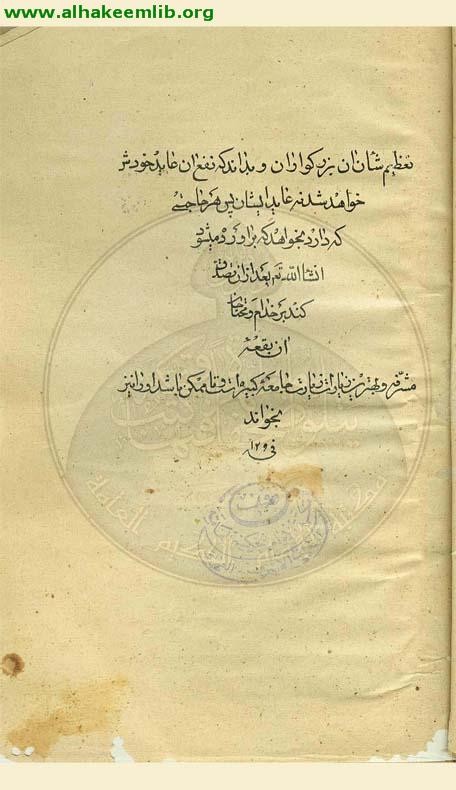 www.alhakeemlib.org
تعظیم شان ان بزرکواران و بداند که نفع ان عاید خودش
خواهد شد نه عاید ایشان پس هر حاجتی
که دارد بخواهد که براورده میشود
انشاالله تع بعد از ان تصدق
کند بر خدام و محتاجان
ان بقعهٔ
مشرفه و بهترین زیارات زیارت جامعهٔ کبیره است وقتا ممکن باشد او را نیز
بخواند
فی ۱۲۹